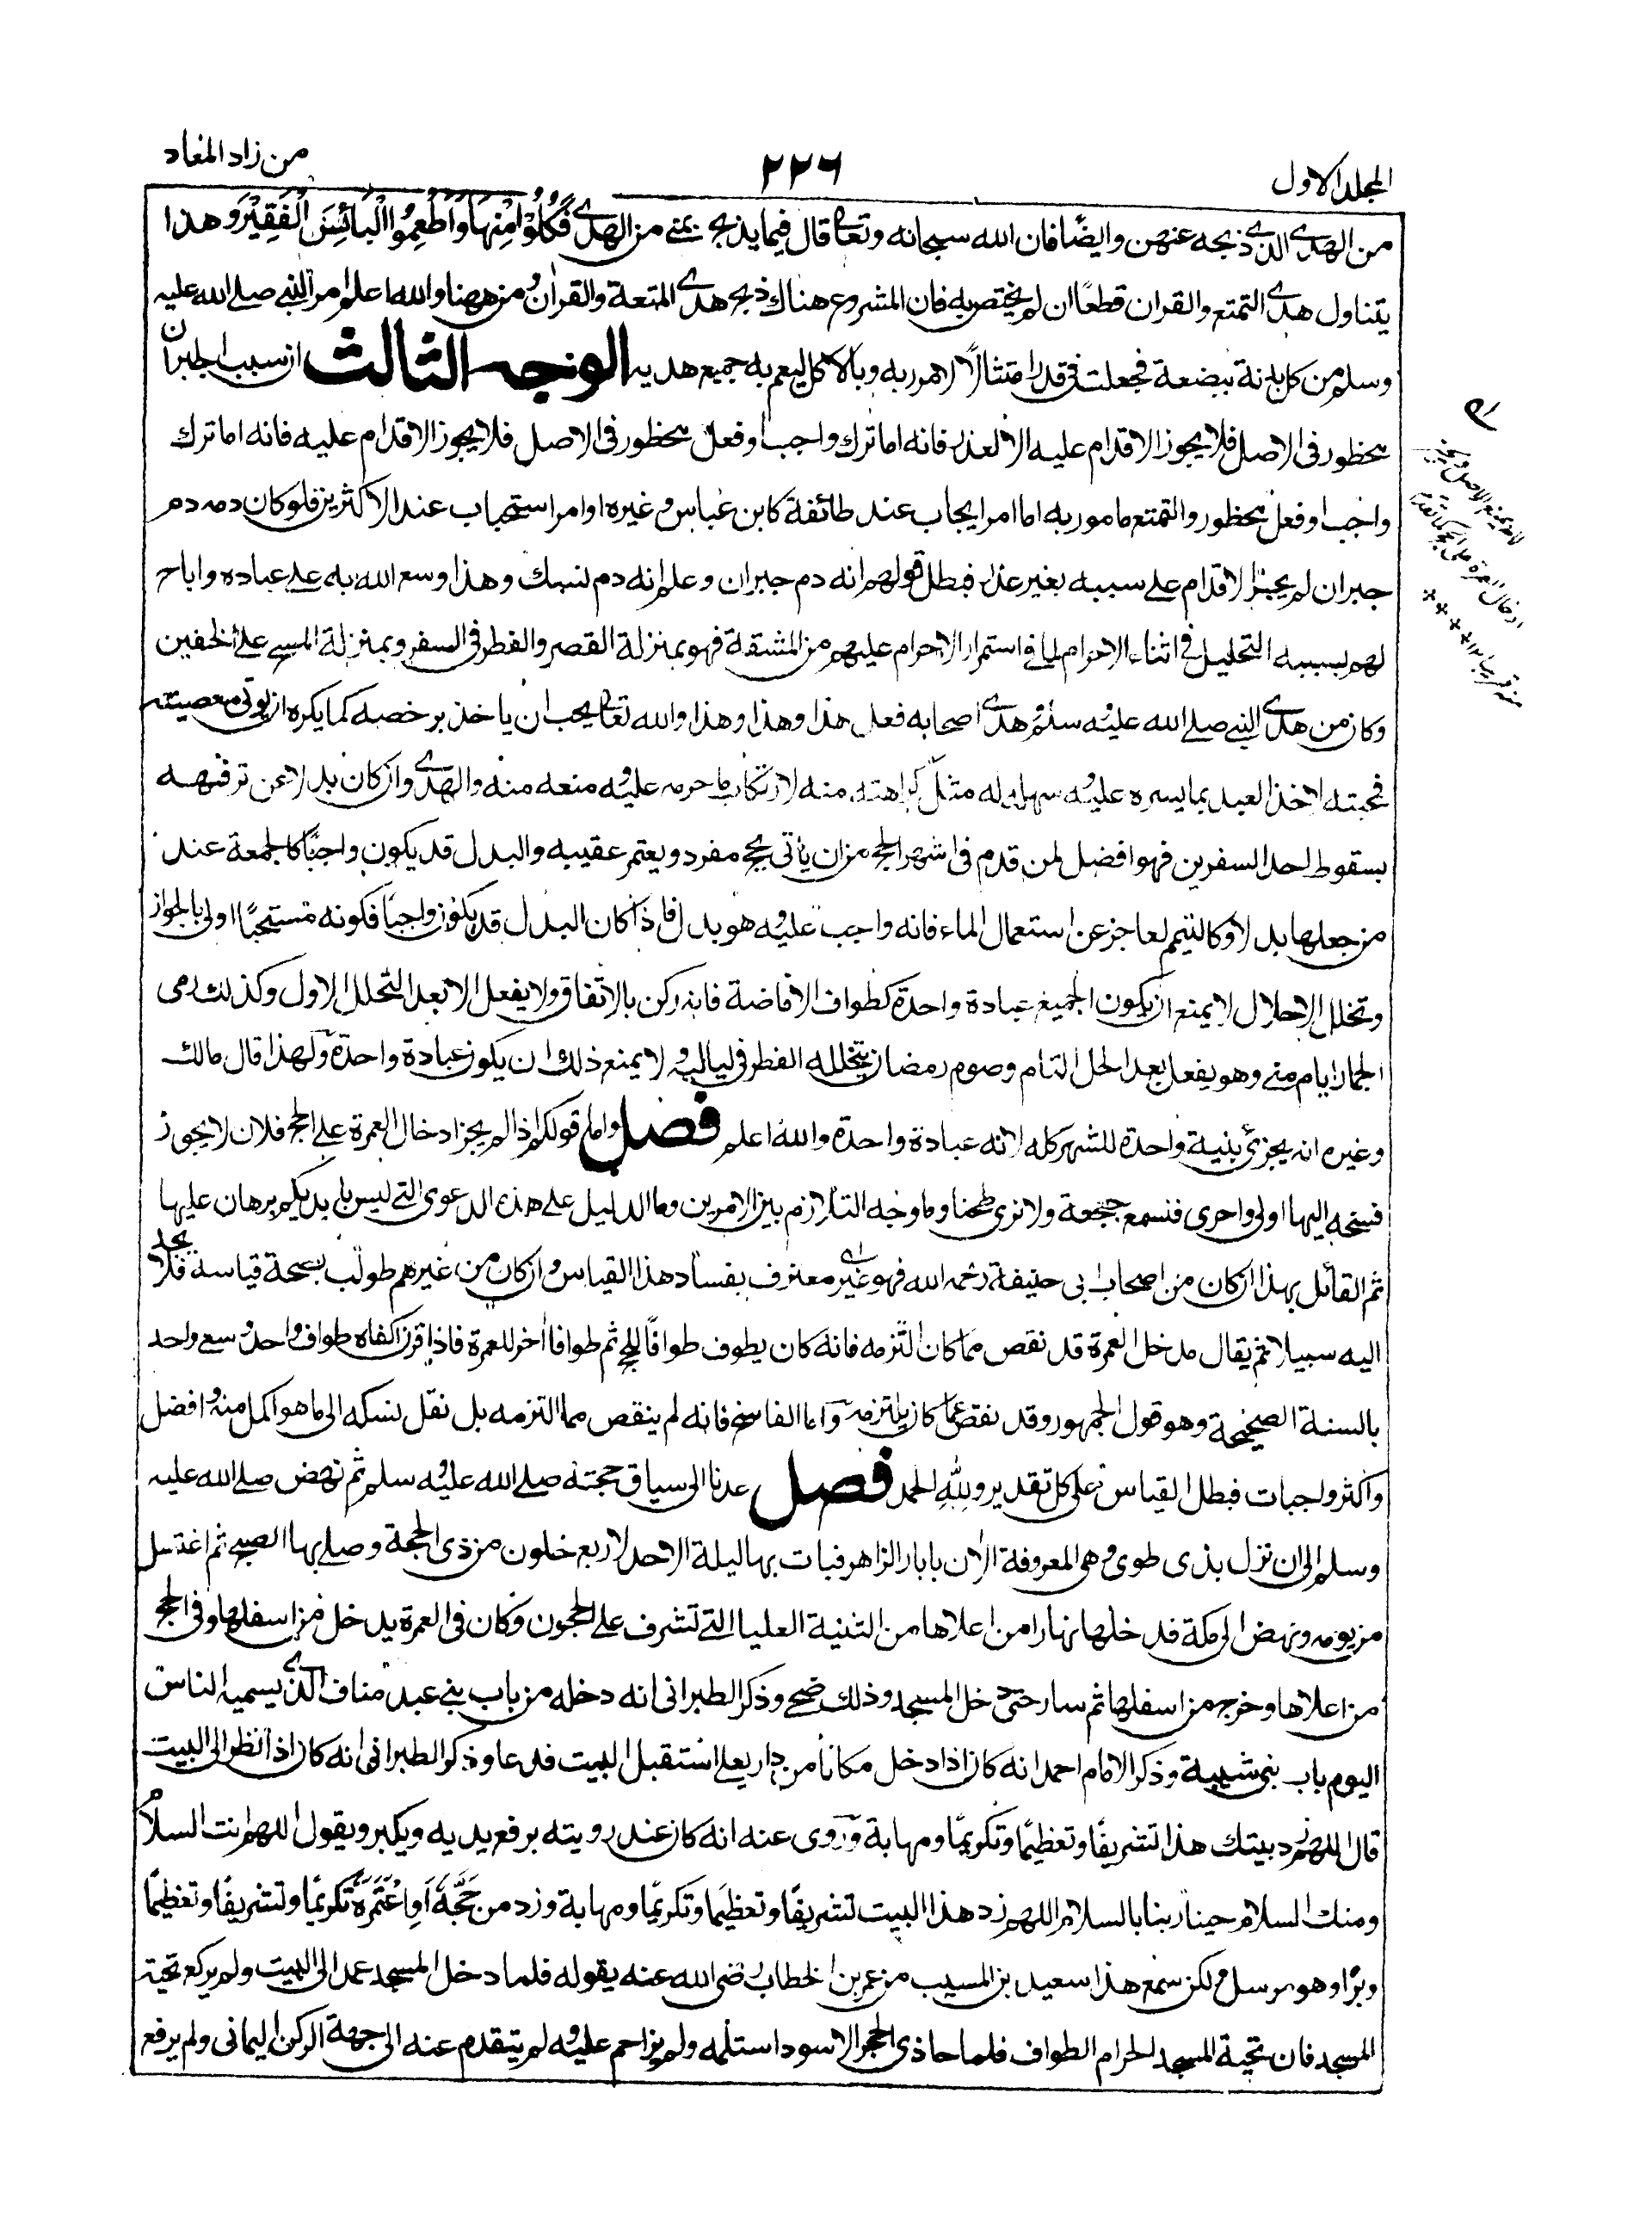 المجلد الاول
٢٢٦
من زاد المعاد
من الهدي الذي ذبحه عنهن وايضًا فان الله سبحانه وتعالى قال فيما يذبح بمنى من الهدي فَكُلُوْا مِنْهَا وَاَطْعِمُوا الْبَائِسَ الْفَقِيْرَ وهذا
يتناول هدي التمتع والقران قطعًا ان لم يختص به فان المشروع هناك ذبح هدي المتعة والقران ومن ههنا والله اعلم امر النبي صلى الله عليه
وسلم من كل بدنة ببضعة فجعلت في قدر امتثالًا لامر ربه وبالاكل ليعم به جميع هديه الوجه الثالث ان سبب الجبران
محظور في الاصل فلا يجوز الاقدام عليه الا لعذر فانه اما ترك واجب او فعل محظور في الاصل فلا يجوز الاقدام عليه فانه اما ترك
واجب او فعل محظور والتمتع مامور به اما امر ايجاب عند طائفة كابن عباس وغيره او امر استحباب عند الاكثرين فلو كان دمه دم
جبران لم يجز الاقدام على سببه بغير عذر فبطل قولهم انه دم جبران وعلم انه دم نسك وهذا وسع الله به على عباده واباح
لهم بسببه التحليل في اثناء الاحرام لما في استمرار الاحرام عليهم من المشقة فهو بمنزلة القصر والفطر في السفر وبمنزلة المسح على الخفين
وكان من هدي النبي صلى الله عليه وسلم وهدي اصحابه فعل هذا وهذا وهذا والله تعالى يحب ان ياخذ برخصه كما يكره ان يوتى معصيته
فمحبته لاخذ العبد بما يسره عليه وسهله له مثل كراهته منه لارتكاب ما حرمه عليه ومنعه منه والهدي وان كان بدلا عن ترفهه
بسقوط احد السفرين فهو افضل لمن قدم في اشهر الحج من ان ياتى بحج مفرد ويعتمر عقيبه والبدل قد يكون واجبًا كالجمعة عند
من جعلها بدلا وكالتيمم لعاجز عن استعمال الماء فانه واجب عليه وهو بدل فاذا كان البدل قد يكون واجبًا فكونه مستحبًا اولى بالجواز
وتخلل الاحلال لا يمنع ان يكون الجميع عبادة واحدة كطواف الافاضة فانه ركن بالاتفاق ولا يفعل الا بعد التحلل الاول وكذلك رمى
الجمار ايام منى وهو يفعل بعد الحل التام وصوم رمضان يتخلله الفطر في لياليه ولا يمنع ذلك ان يكون عبادة واحدة ولهذا قال مالك
وغيره انه يجزئ بنية واحدة للشهر كله لانه عبادة واحدة والله اعلم فصل واما قولكم اذا لم يجز ادخال العمرة على الحج فلان لا يجوز
فسخه اليها اولى واحرى فنسمع جعجعة ولا نرى طحنا وما وجه التلازم بين الامرين وما الدليل على هذه الدعوى التي ليس بايديكم برهان عليها
ثم القائل بهذا ان كان من اصحاب ابى حنيفة رحمه الله فهو غير معترف بفساد هذا القياس وان كان من غيرهم طولب بصحة قياسه فلا يجد
اليه سبيلا ثم يقال مدخل العمرة قد نقص مما كان التزمه فانه كان يطوف طوافًا للحج ثم طوافا اخر للعمرة فاذا قرن كفاه طواف واحد وسعى واحد
بالسنة الصحيحة وهو قول الجمهور وقد نقص عما كان يلتزمه واما الفاسخ فانه لم ينقص مما التزمه بل نقل نسكه الى ما هو اكمل منه وافضل
واكثر واجبات فبطل القياس على كل تقدير ولله الحمد فصل عدنا الى سياق حجته صلى الله عليه وسلم ثم نهض صلى الله عليه
وسلم الى ان نزل بذى طوى وهى المعروفة الان بابار الزاهر فبات بها ليلة الاحد لاربع خلون من ذى الحجة وصلى بها الصبح ثم اغتسل
من يومه ونهض الى مكة فدخلها نهارا من اعلاها من الثنية العليا التي تشرف على الحجون وكان في العمرة يدخل من اسفلها وفى الحج
من اعلاها وخرج من اسفلها ثم سار حتى دخل المسجد وذلك ضحى وذكر الطبرانى انه دخله من باب بنى عبد مناف الذي يسميه الناس
اليوم باب بنى شيبة وذكر الامام احمد انه كان اذا دخل مكانا من دار يعلى استقبل البيت فدعا وذكر الطبرانى انه كان اذا نظر الى البيت
قال اللهم زد بيتك هذا تشريفًا وتعظيمًا وتكريمًا ومهابة وروى عنه انه كان عند رويته يرفع يديه ويكبر ويقول اللهم انت السلام
ومنك السلام حينا ربنا بالسلام اللهم زد هذا البيت تشريفًا وتعظيمًا وتكريمًا ومهابة وزد من حَجَّهٗ اَوِ اعْتَمَرَهٗ تكريمًا وتشريفًا وتعظيمًا
وبرًا وهو مرسل ولكن سمع هذا سعيد بن المسيب من عمر بن الخطاب رضى الله عنه يقوله فلما دخل المسجد عمد الى البيت ولم يركع تحية
المسجد فان تحية المسجد الحرام الطواف فلما حاذى الحجر الاسود استلمه ولم يزاحم عليه ولم يتقدم عنه الى جهة الركن اليمانى ولم يرفع